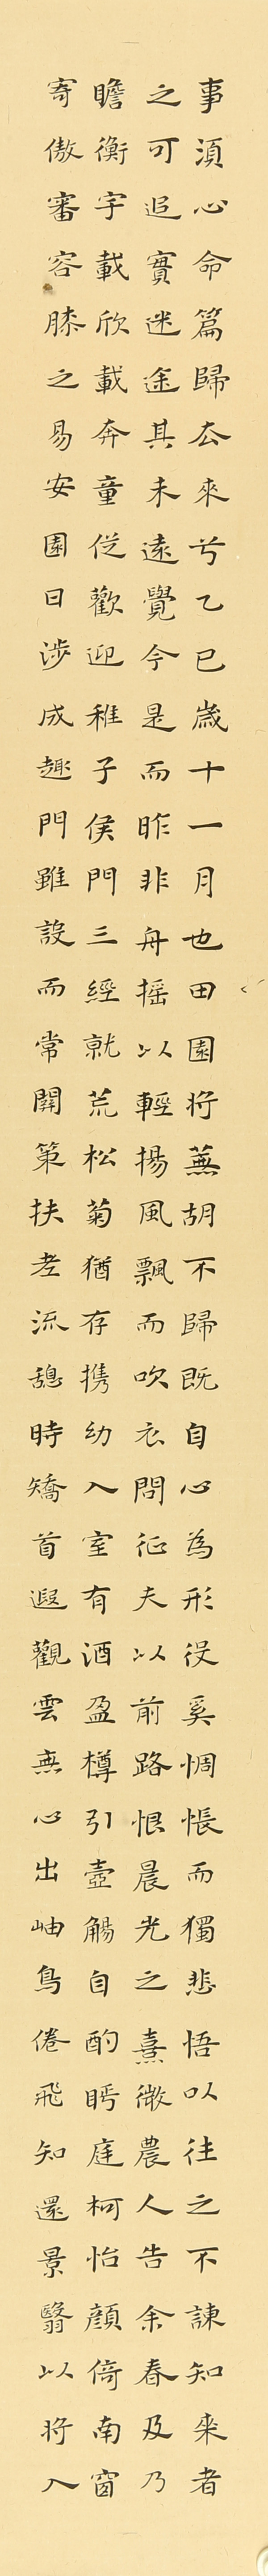 事須心命篇歸去來兮乙巳歲十一月也田園將蕪胡不歸既自心為形役奚惆悵而獨悲悟以往之不諫知来者
之可追實迷途其未遠覺今是而昨非舟搖以輕揚風飄而吹衣問征夫以前路恨晨光之熹微農人告余春及乃
瞻衡宇載欣載奔童従歡迎稚子侯門三經就荒松菊猶存携幼入室有酒盈樽引壺觴自酌眄庭柯怡顏倚南窗
寄傲審容膝之易安園日涉成趣門雖設而常關策扶老流憩時矯首遐觀雲無心出岫鳥倦飛知還景翳以將入